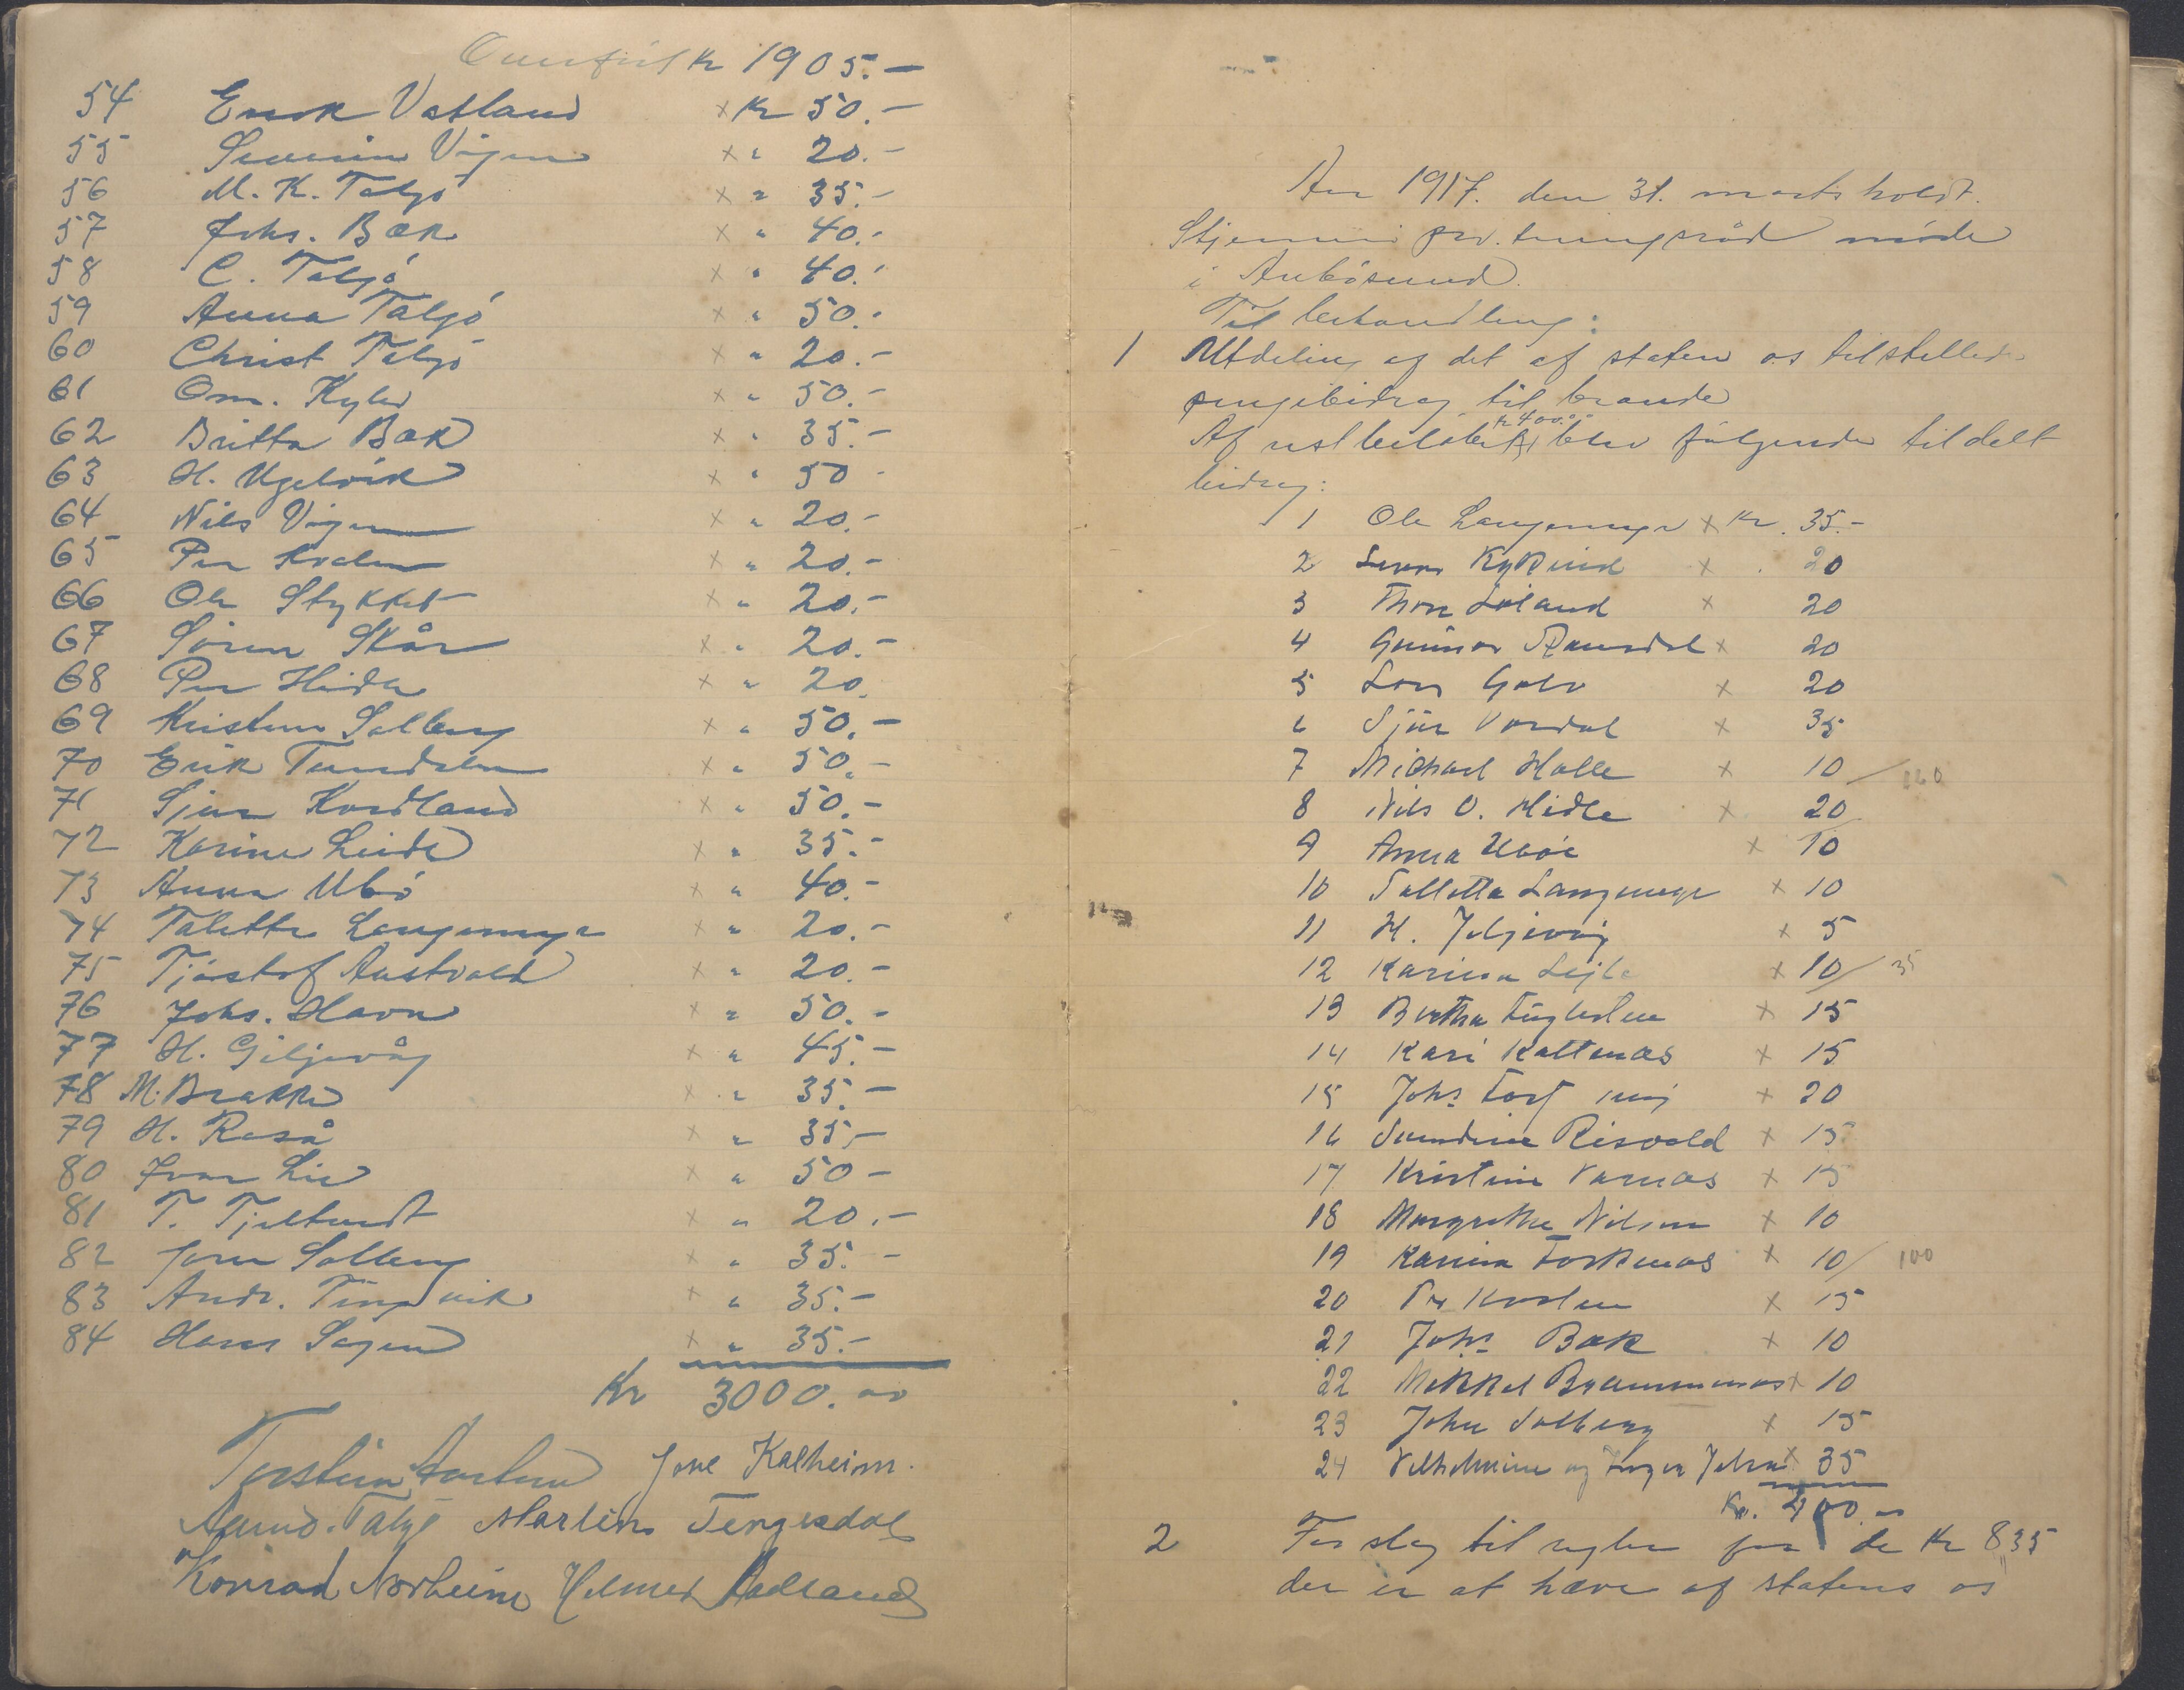 Overført Kr 1905.-
54 Erik Vatland x Kr 50.-
55 Severin Vigen x " 20.-
56 M. K. Talgø x " 35.-
57 Johs. Bæk x " 40.-
58 C. Talgø x " 40.-
59 Anna Talgø x " 50.-
60 Christ Talgø x " 20.-
61 Om. Kyles x " 50.-
62 Britta Bæk x " 35.-
63 H. Ugelvik x " 50 -
64 Nils Vigen x " 20.-
65 Per Kvalen x " 20.-
66 Ole Stykket x " 20.-
67 Sören Skår x " 20.-
68 Per Hidle x " 20.
69 Kristine Solberg x " 50.-
70 Erik x " 50.-
71 Sjur Hordland x " 50.-
72 Karine x " 35.-
73 Anna Ubø x " 40.-
74 Talette Langemyr x " 20.-
75 Tjøstof Austvold x " 20.-
76 Johs. Havn x " 50.-
77 H. Giljevåg x " 45.-
78 M. Brakke x " 35.-
79 H. Raså x " 35,-
80 Ivar Lie x " 50 -
81 T. Tjeltundt x " 20.-
82 Jorn Solberg x " 35.-
83 Andr. Tingvik x " 35.-
84 Hans Sagen x " 35.-
Kr 3000.00
Torstein Jone Kalheim.
Aamd. Talgø Martin Tengesdal
Konrad Norheim Helmer Aadland
Aar 1917. den 31. marts holdt
Stjernerø pro. møde
i Anbøsund.
Til behandling:
1 Utdeling af det af staten os tilstillede
pengebidrag til brænde
Kr 400.00
Af blev følgende tildelt
bidrag:
1 Ole Langemyr x Kr. 35.-
2 Kykkeud x . 20
3 Thore Løland x 20
4 Gunnar Ramsdal x 20
5 Lars x 20
6 Sjur Vordal x 35
7 Michael Halle x 10/ 160
8 Nils O. Hidle x 20
9 Anna Ubøe x 10
10 Talletta Langemyr x 10
11 H. Jeljevåg x 5
12 Karina x 10/ 35
13 Bertha x 15
14 Kari Kaltenæs x 15
15 Johs x 20
16 Risvold x 15
17 Kristine Varnæs x 15
18 Margrethe Nilsen x 10
19 Karina Torsknæs x 10/ 100
20 Pr Kvalen x 15
21 Johs Bæk x 10
22 Mikkel x 10
23 John Solberg x 15
24 Vilhelmine og Inger x 35
Kr. 400.-
2 Forslag til regler for de Kr 835
der er at hæve af statens os